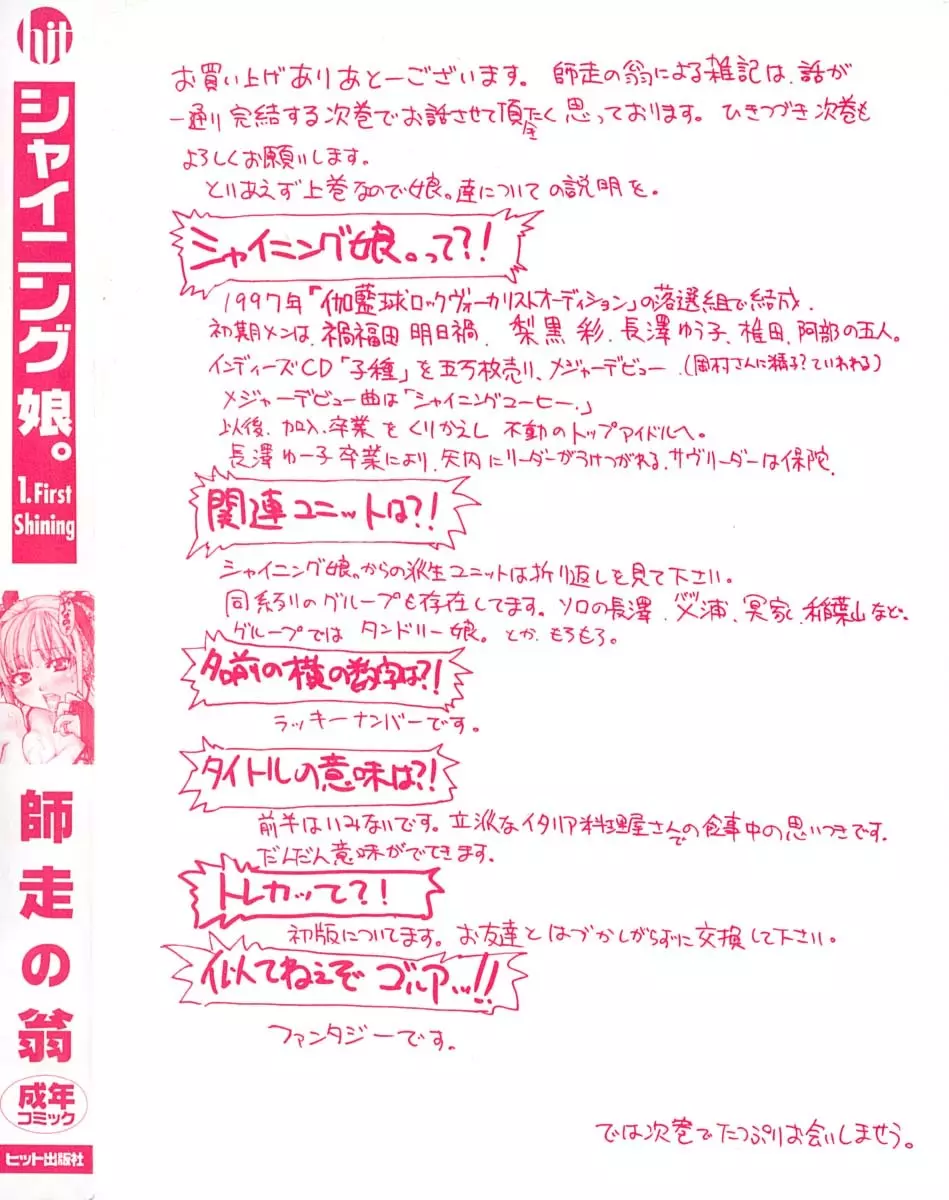 hit
シャイニング娘。
1.First
Shining
師走の翁
成年
コミック
ヒット出版社
お買い上げありあとーございます。 師走の翁による雑記は、話が
一通り完結する次巻でお話させて頂きたく思っております。 ひきつづき次巻も
よろしくお願いします。
とりあえず上巻なので娘。達についての説明を。
シャイニング娘。って?!
1997年「伽藍球ロックヴォーカリストオーディション」の落選組で結成.
初期メンは、禍福田 明日禍、 梨黒 彩、長澤ゆう子、椎田、阿部の五人。
インディーズCD「子種」を五万枚売り、メジャーデビュー.(岡村さんに精子?ていわれる)
メジャーデビュー曲は「シャイニングコーヒー.」
以後、加入、卒業をくりかえし 不動のトップアイドルへ。
長澤ゆー子卒業により、矢内にリーダーがうけつがれる、サヴリーダーは保陀.
関連ユニットは?!
シャイニング娘。からの派生ユニットは折り返しを見て下さい。
同系列のグループも存在してます。ソロの長澤、浦、冥家、稲葉山など、
グループでは タンドリー娘。とか、もろもろ。
名前の横の数字は?!
ラッキーナンバーです。
タイトルの意味は?!
前半はいみないです。立派なイタリア料理屋さんでの食事中の思いつきです.
だんだん意味がでてきます.
トレカッて?!
初版についてます。お友達とはづかしがらずに交換して下さい。
似てねぇぞ ゴルアッ!!
ファンタジーです。
では次巻でたっぷりお会いしませう。